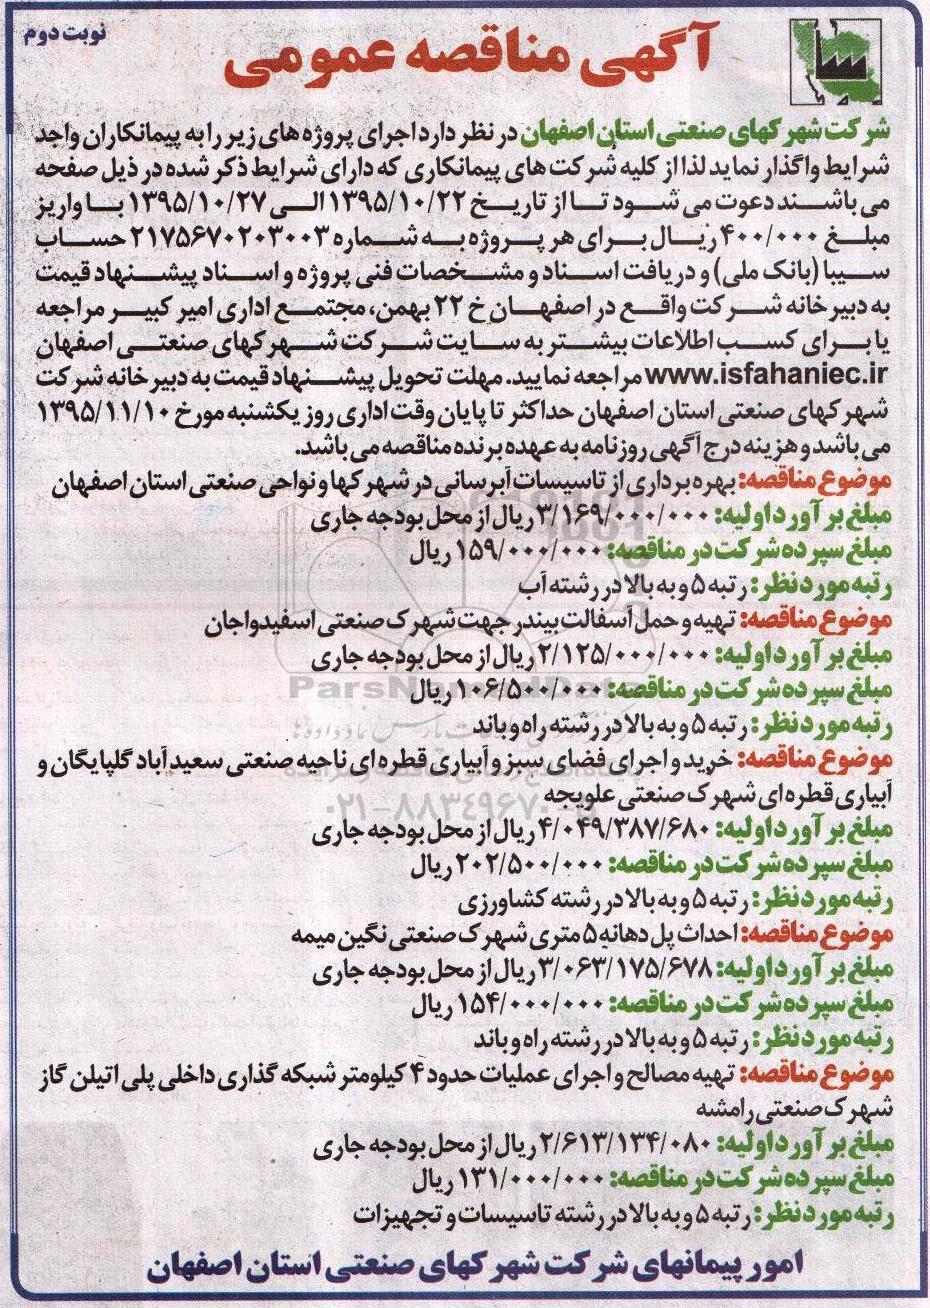 نوبت دوم
آگهی مناقصه عمومی
شرکت شهرکهای صنعتی استان اصفهان در نظر دارد اجرای پروژه های زیر را به پیمانکاران واجد
شرایط واگذار نماید لذا از کلیه شرکت های پیمانکاری که دارای شرایط ذکر شده در ذیل صفحه
می باشند دعوت می شود تا از تاریخ ۱۳۹۵/۱۰/۲۲ الی ۱۳۹۵/۱۰/۲۷ با واریز
مبلغ ۴۰۰/۰۰۰ ریال برای هر پروژه به شماره ۲۱۷۵۶۷۰۲۰۳۰۰۳ حساب
سیبا (بانک ملی) و دریافت اسناد و مشخصات فنی پروژه و اسناد پیشنهاد قیمت
به دبیرخانه شرکت واقع در اصفهان خ ۲۲ بهمن، مجتمع اداری امیر کبیر مراجعه
یا برای کسب اطلاعات بیشتر به سایت شرکت شهرکهای صنعتی اصفهان
www.isfahaniec.ir مراجعه نمایید. مهلت تحویل پیشنهاد قیمت به دبیرخانه شرکت
شهرکهای صنعتی استان اصفهان حداکثر تا پایان وقت اداری روز یکشنبه مورخ ۱۳۹۵/۱۱/۱۰
می باشد و هزینه درج آگهی روزنامه به عهده برنده مناقصه می باشد.
موضوع مناقصه: بهره برداری از تاسیسات آبرسانی در شهرکها و نواحی صنعتی استان اصفهان
مبلغ برآورد اولیه: ۳/۱۶۹/۰۰۰/۰۰۰ ریال از محل بودجه جاری
مبلغ سپرده شرکت در مناقصه: ۱۵۹/۰۰۰/۰۰۰ ریال
رتبه مورد نظر: رتبه ۵ و به بالا در رشته آب
موضوع مناقصه: تهیه و حمل آسفالت بیندر جهت شهرک صنعتی اسفیدواجان
مبلغ برآورد اولیه: ۲/۱۲۵/۰۰۰/۰۰۰ ریال از محل بودجه جاری
مبلغ سپرده شرکت در مناقصه: ۱۰۶/۵۰۰/۰۰۰ ریال
رتبه مورد نظر: رتبه ۵ و به بالا در رشته راه و باند
موضوع مناقصه: خرید و اجرای فضای سبز و آبیاری قطره ای ناحیه صنعتی سعید آباد گلپایگان و
آبیاری قطره ای شهرک صنعتی علویجه
مبلغ برآورد اولیه: ۴/۰۴۹/۳۸۷/۶۸۰ ریال از محل بودجه جاری
مبلغ سپرده شرکت در مناقصه: ۲۰۲/۵۰۰/۰۰۰ ریال
رتبه مورد نظر: رتبه ۵ و به بالا در رشته کشاورزی
موضوع مناقصه: احداث پل دهانه ۵ متری شهرک صنعتی نگین میمه
مبلغ برآورد اولیه: ۳/۰۶۳/۱۷۵/۶۷۸ ریال از محل بودجه جاری
مبلغ سپرده شرکت در مناقصه: ۱۵۴/۰۰۰/۰۰۰ ریال
رتبه مورد نظر: رتبه ۵ و به بالا در رشته راه و باند
موضوع مناقصه: تهیه مصالح و اجرای عملیات حدود ۴ کیلومتر شبکه گذاری داخلی پلی اتیلن گاز
شهرک صنعتی رامشه
مبلغ برآورد اولیه: ۲/۶۱۳/۱۳۴/۰۸۰ ریال از محل بودجه جاری
مبلغ سپرده شرکت در مناقصه: ۱۳۱/۰۰۰/۰۰۰ ریال
رتبه مورد نظر: رتبه ۵ و به بالا در رشته تاسیسات و تجهیزات
امور پیمانهای شرکت شهرکهای صنعتی استان اصفهان
ParsNamadData
۰۲۱-۸۸۳۴۹۶۷۰